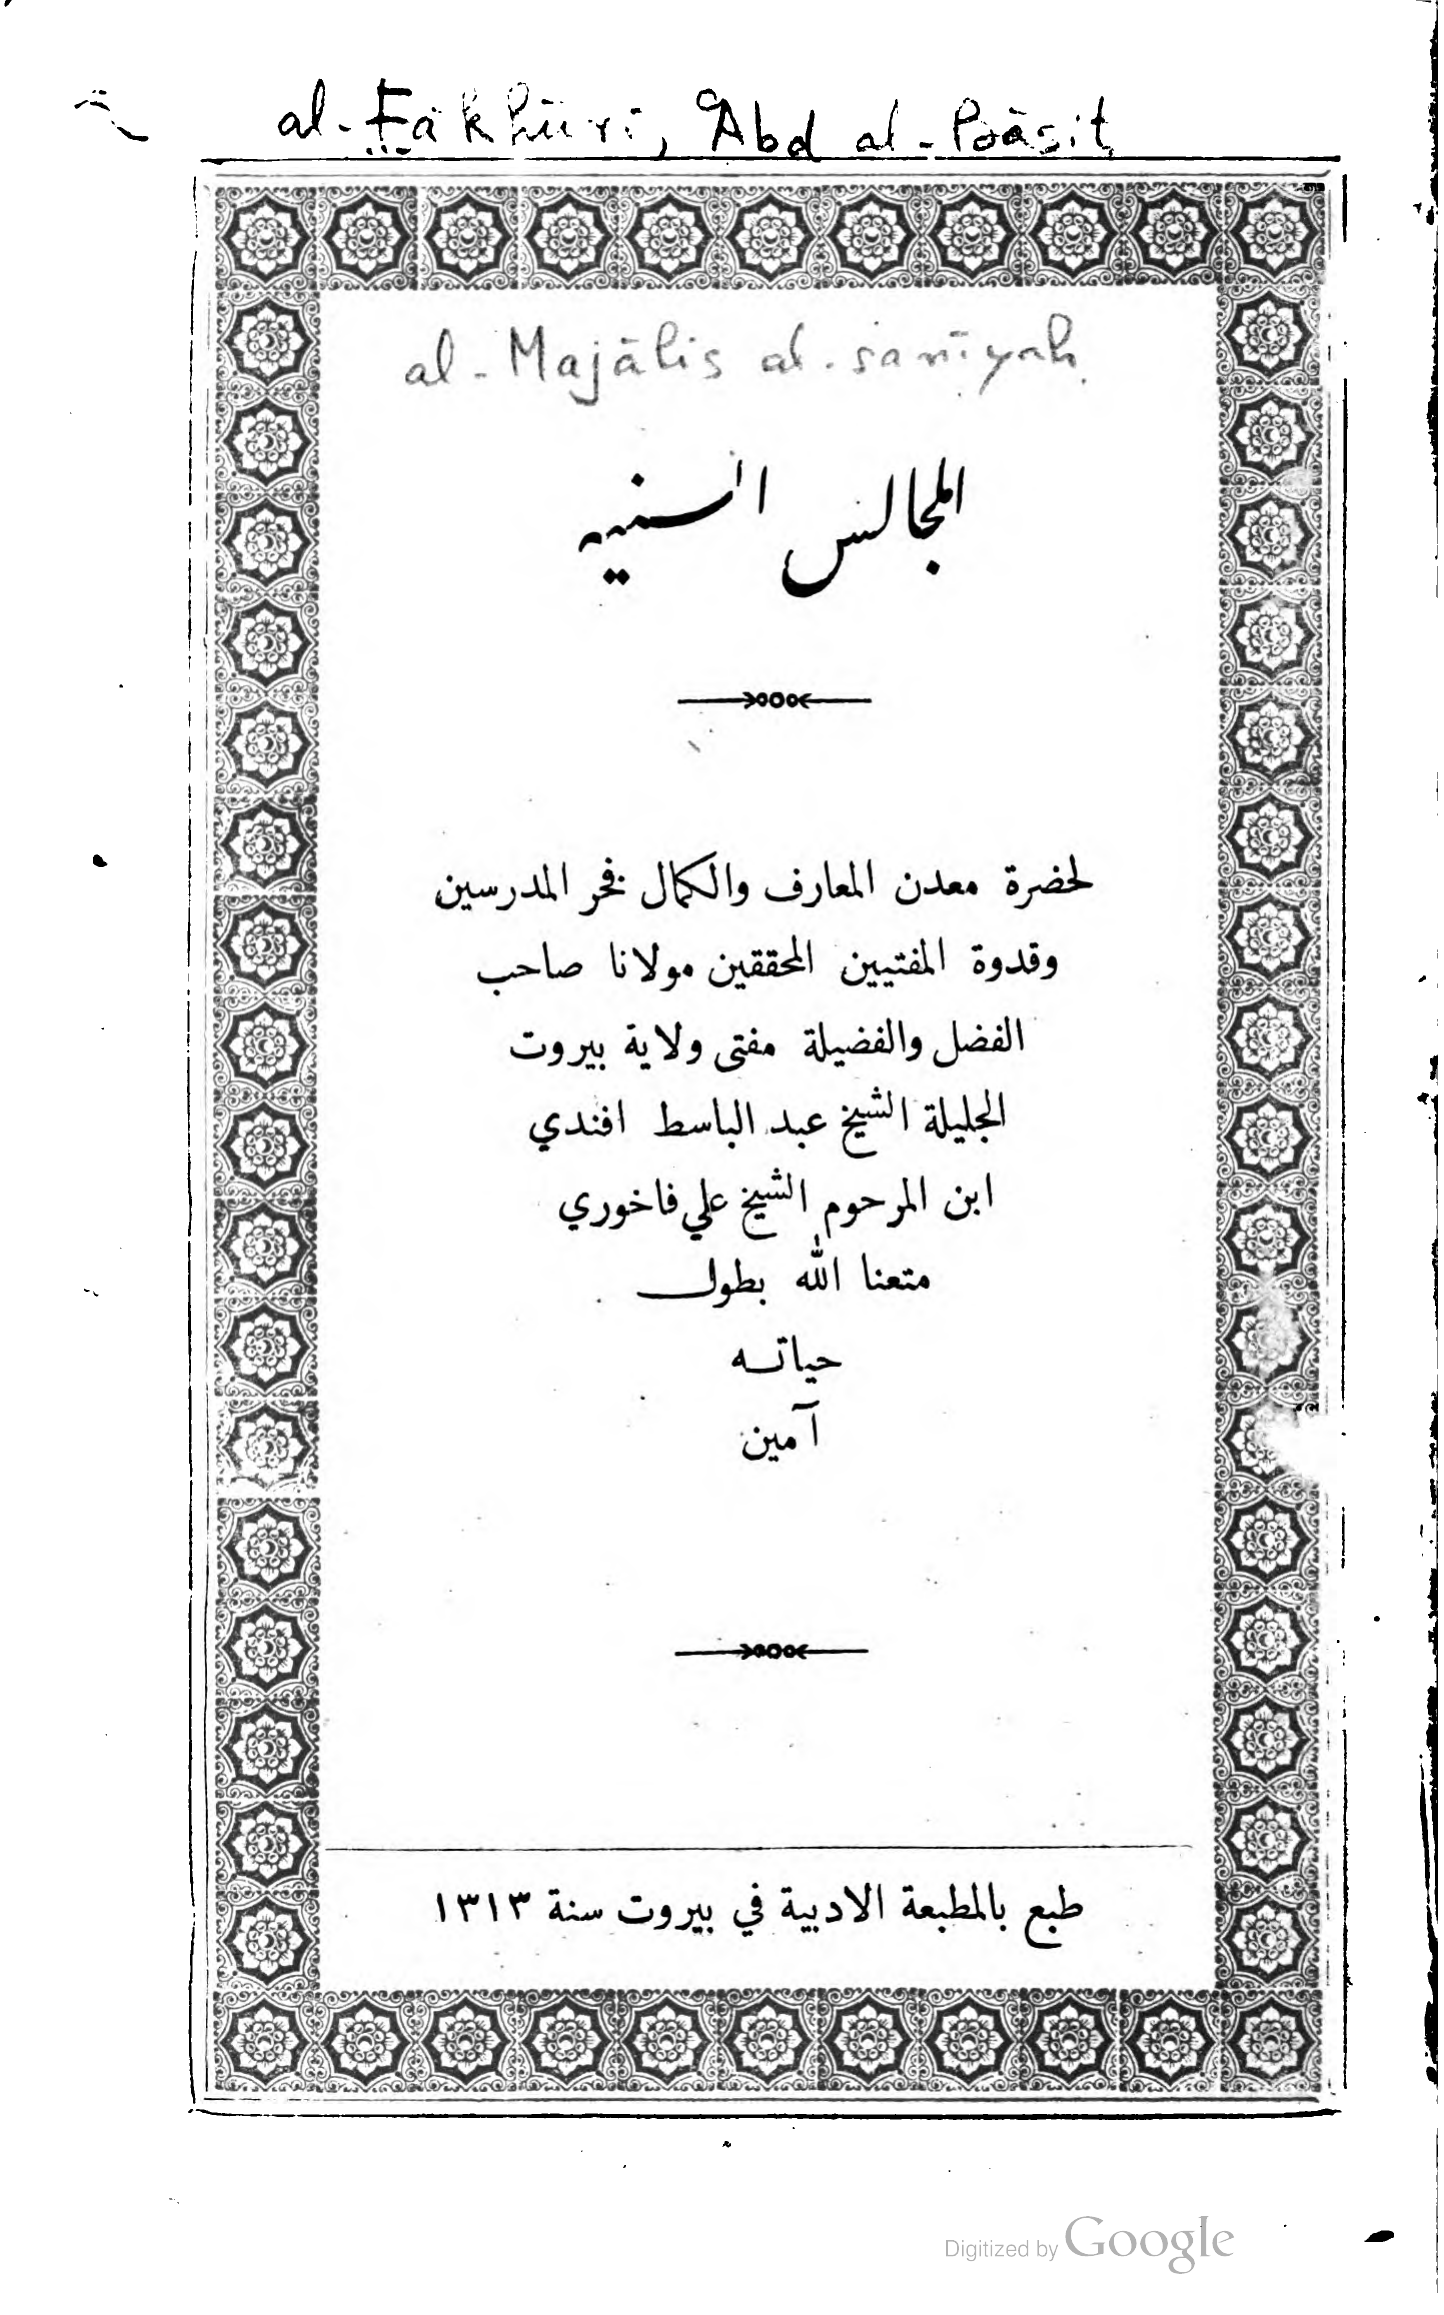 al-Fākhūrī, ʿAbd al-Bāsiṭ
al-Majālis al-sanīyah
المجالس السنيه
لحضرة معدن المعارف والكمال فخر المدرسين
وقدوة المفتيين المحققين مولانا صاحب
الفضل والفضيلة مفتى ولاية بيروت
الجليلة الشيخ عبد الباسط افندي
ابن المرحوم الشيخ علي فاخوري
متعنا الله بطول
حياته
آمين
طبع بالمطبعة الادبية في بيروت سنة ١٣١٣
Digitized by Google